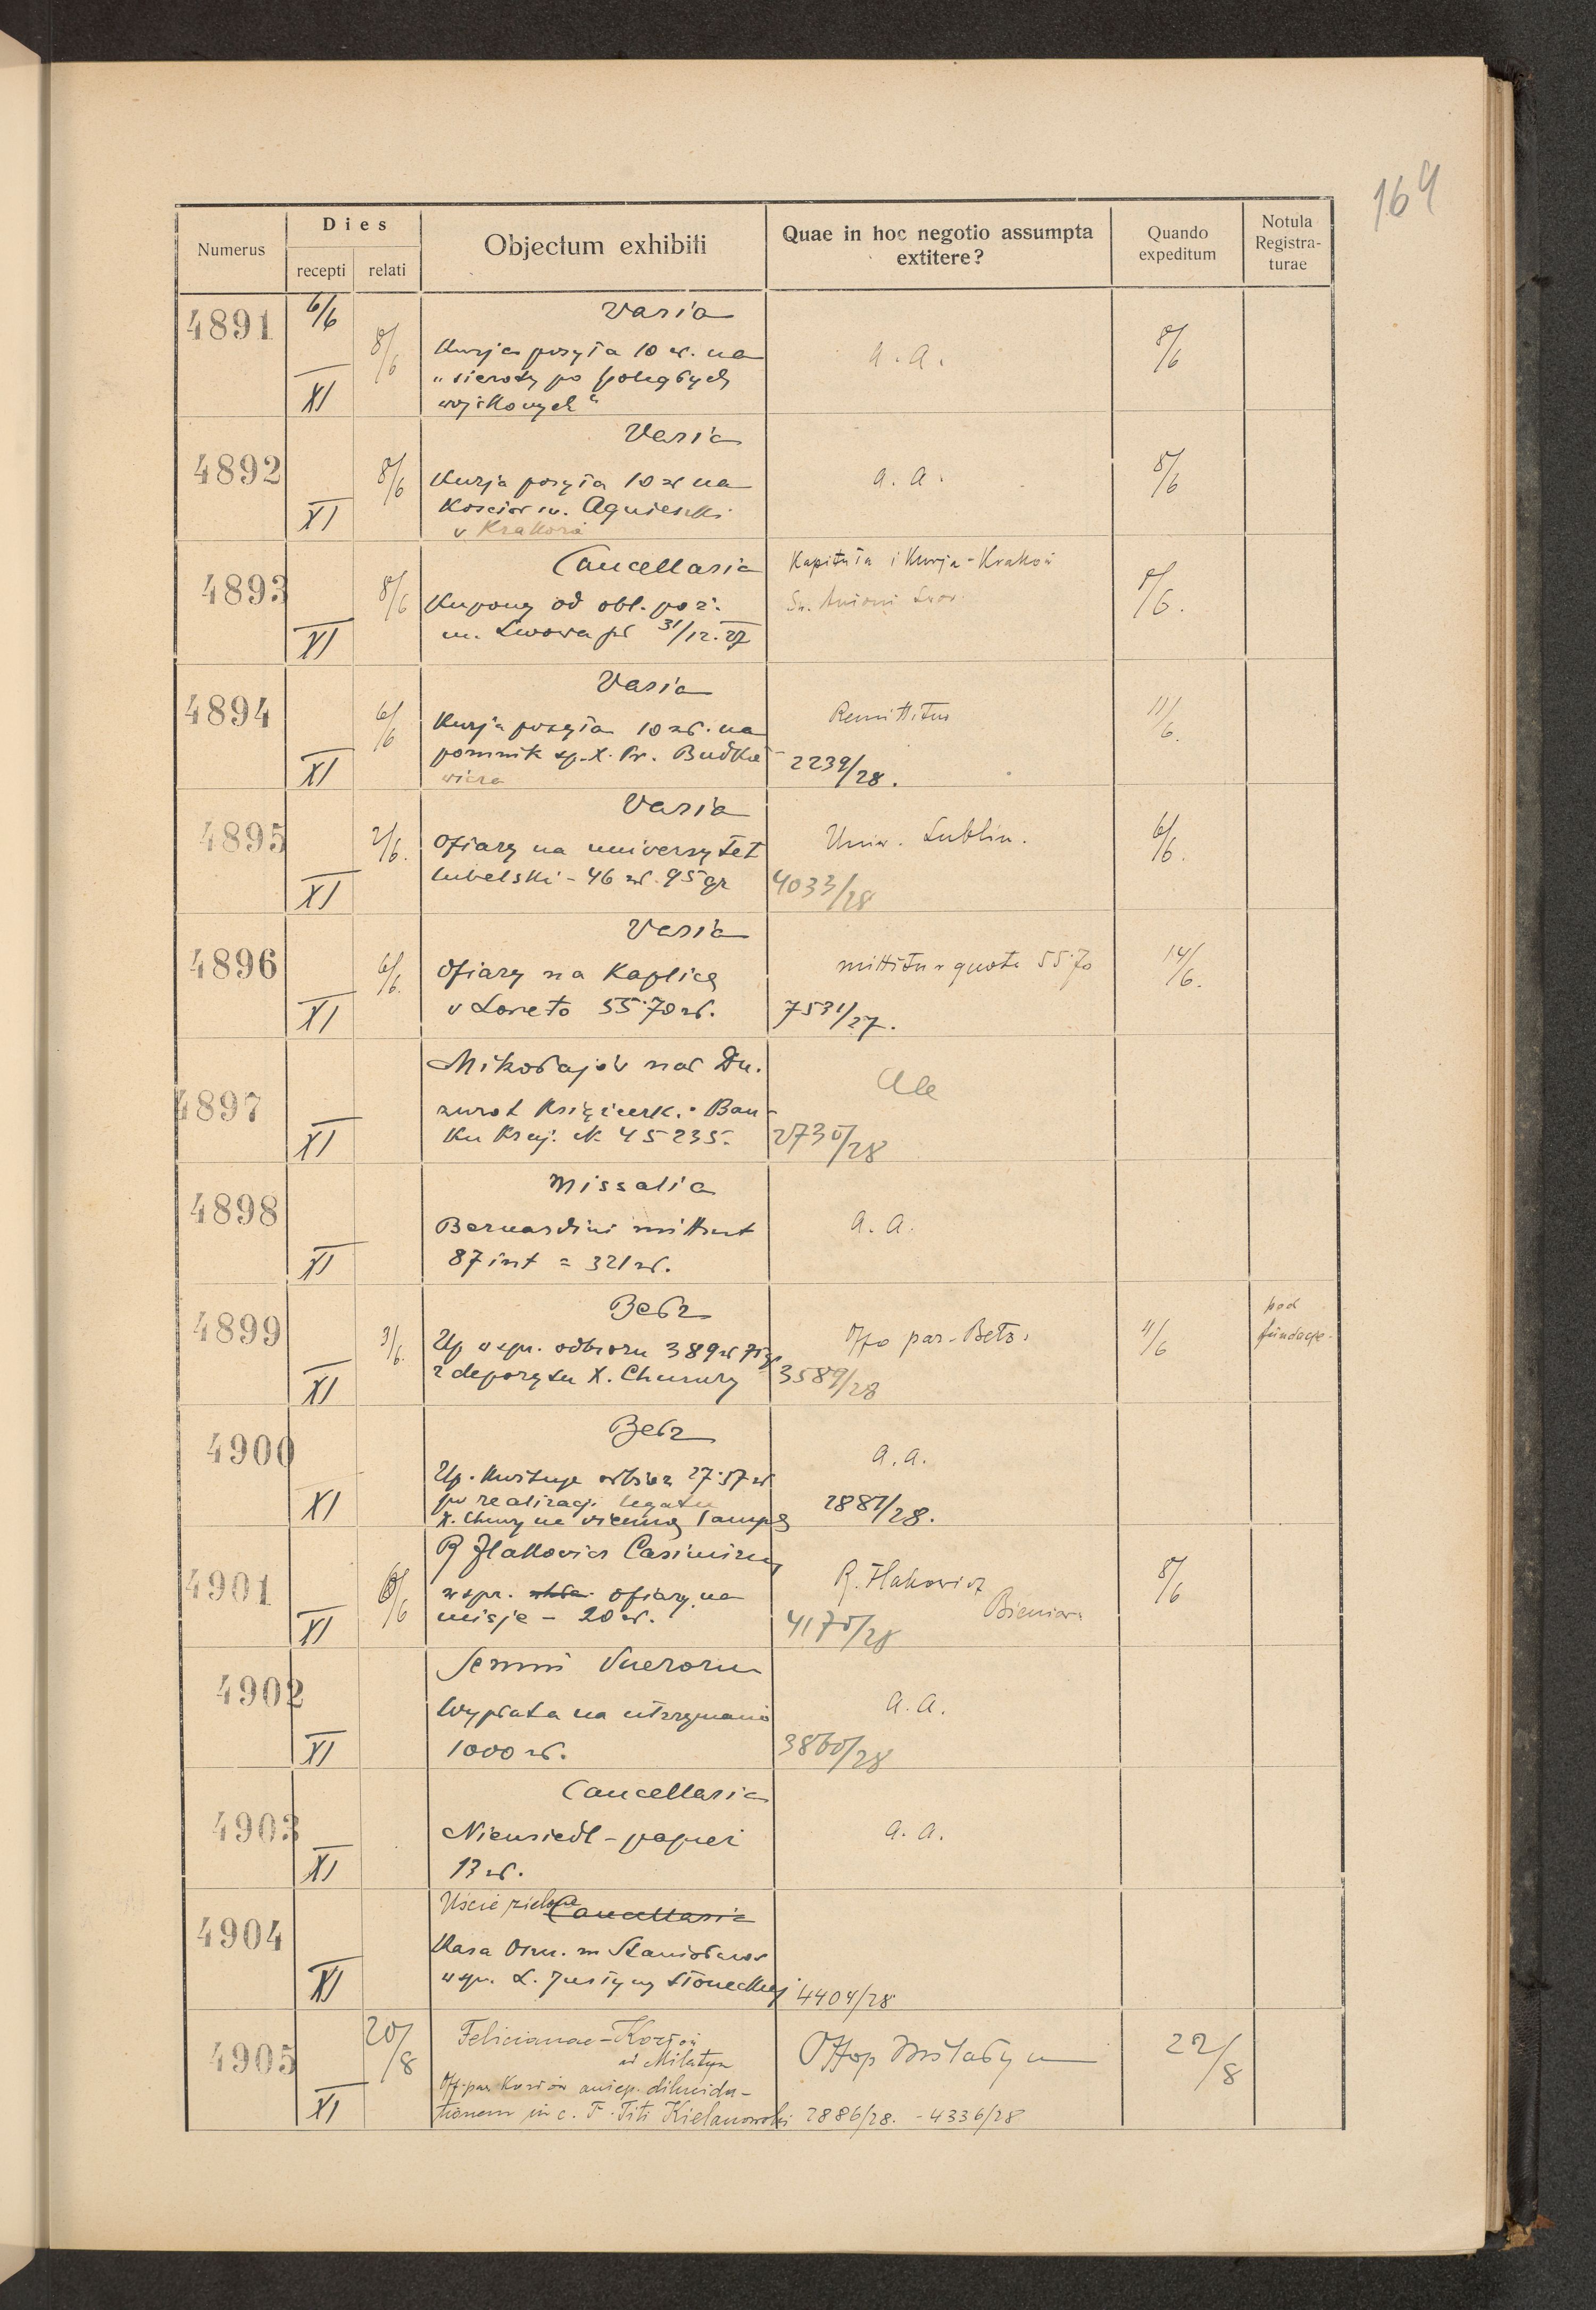 164
Numerus
Dies
recepti
relati
Objectum exhibiti
Quae in hoc negotio assumpta
extitere?
Quando
expeditum
Notula
Registra-
turae
4891
6/6
XI
8/6
Varia
Kurja posyła 10 zł. na
„sieroty po poległych
wojskowych“
a. a.
8/6
4892
XI
8/6
Varia
Kurja posyła 10 zł na
Kościół św. Agnieszki
w Krakowie
a. a.
8/6
4893
XI
8/6
Cancellaria
Kupony od obl. poż.
m. Lwowa pł 31/12. 27
Kapituła i Kurja - Kraków
8/6.
4894
XI
6/6
Varia
Kurja posyła 10 zł. na
pomnik śp. X. Budkie-
wicza
Remittitur
2239/28.
11/6.
4895
XI
2/6.
Varia
Ofiary na uniwersytet
lubelski - 46 zł. 95 gr
Uniw. Lublin.
4033/28
6/6.
4896
XI
6/6.
Varia
Ofiary na Kaplicę
w Loreto 55.70 zł.
mittitur quota 55.70
7531/27.
14/6.
4897
XI
Mikołajów nad Dn.
zwrot Książeczk. Ban-
ku Kraj. N. 45235.
2735/28
4898
XI
Missalia
Bernardini mittunt
87 int = 321 zł.
a. a.
4899
XI
3/6.
Bełz
Up w spr. odbioru 389 zł
z depozytu X. Chmury
Offo par. Bełz.
3589/28
11/6
pod
fundacje.
4900
XI
Bełz
Up. Kwituje odbiór 27.57 zł
po realizacji legatu
X. Chmury na wieczną lampę
a. a.
2887/28.
4901
XI
6/6
R Iłakowicz
w spr. ofiary na
misje - 20 zł.
R. Iłakowicz
4175/28
8/6
4902
XI
Wypłata na utrzymanie
1000 zł.
a. a.
3860/28
4903
XI
Cancellaria
Niensiedl - papier
13 zł.
a. a.
4904
XI
Uście zielone
Cancellaria
Kasa Osz. m Stanisławów
w spr. L. Justyny Słoneckiej
4404/28
4905
XI
20/8
Felicianae - Kozłów
ad Milatyn
tionem in c. F. Titi Kielanowski
Offop Milatyn
2886/28. - 4336/28
22/8